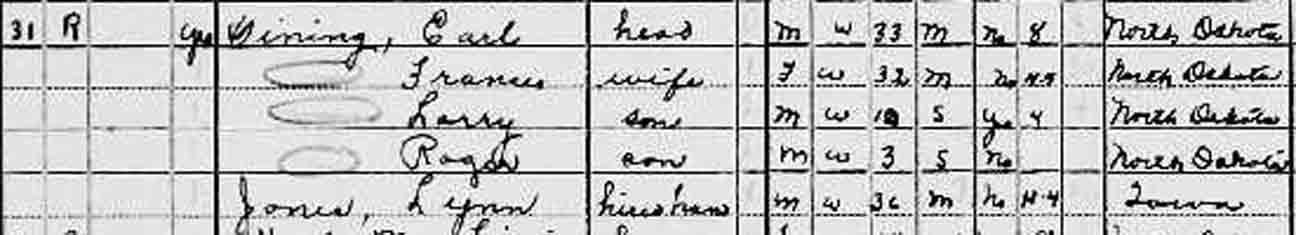 31 R yes Gining, Earl head M W 33 M no 8 North Dakota
Frances wife F W 32 M no H-4 North Dakota
Larry son M W 10 S yes 4 North Dakota
Roger son M W 3 S no North Dakota
Jones, Lynn hired man M W 36 M no H-4 Iowa